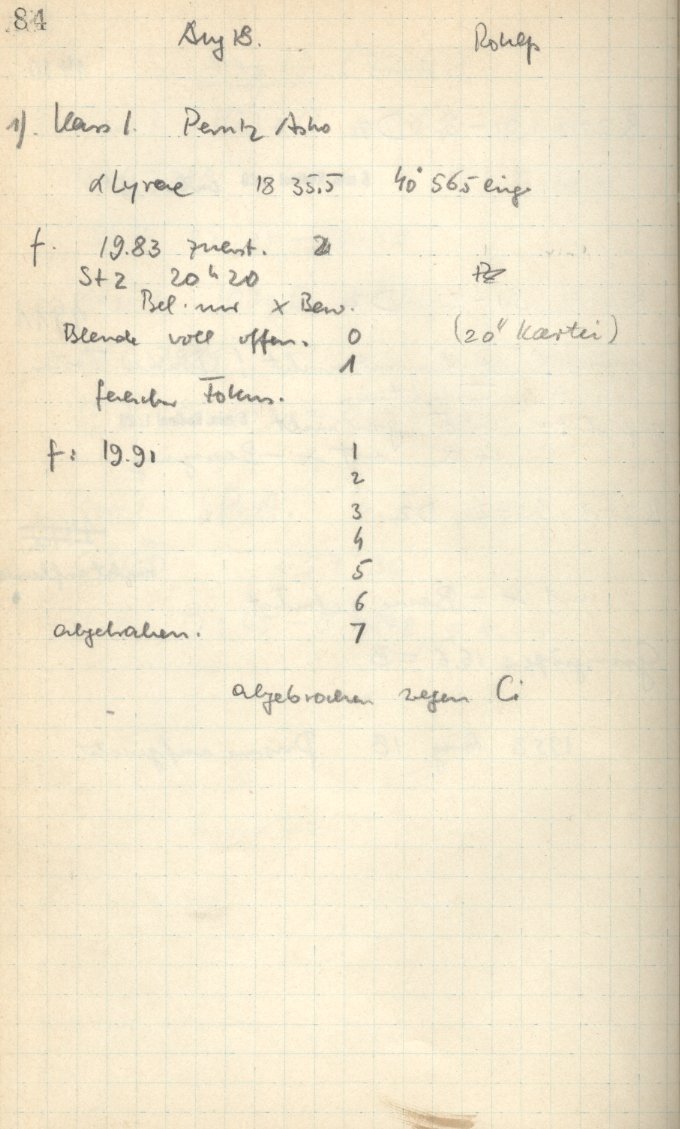 84
Aug 18. Rohlf
1). Kass 1. Perutz Astro
α Lyrae 18 35.5 40° 565 eing.
f. 19.83 zuerst.
St 2 20ʰ20
Bel. nur x Bew.
Blende voll offen. 0 (20" Kartei)
1
falscher Fokus.
f: 19.91 1
2
3
4
5
6
abgebrochen. 7
abgebrochen wegen Ci